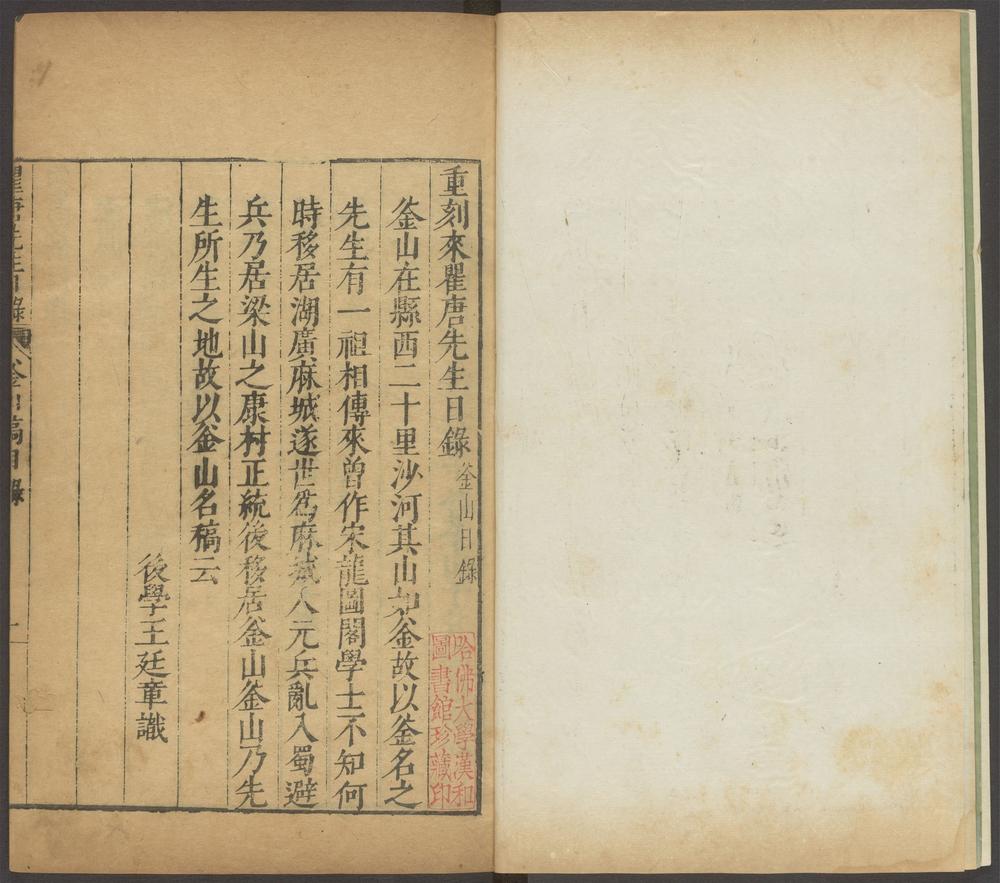 重刻來瞿唐先生日錄 釜山日錄
釜山在縣西二十里沙河其山如釜故以釜名之
先生有一祖相傳來曾作宋龍圖閣學士不知何
時移居湖廣麻城遂世爲麻城人元兵亂入蜀避
兵乃居梁山之康村正統後移居釜山釜山乃先
生所生之地故以釜山名稿云
後學王廷章識
哈佛大學漢和
圖書館珍藏印
瞿唐先生日錄 釜山稿目錄 一